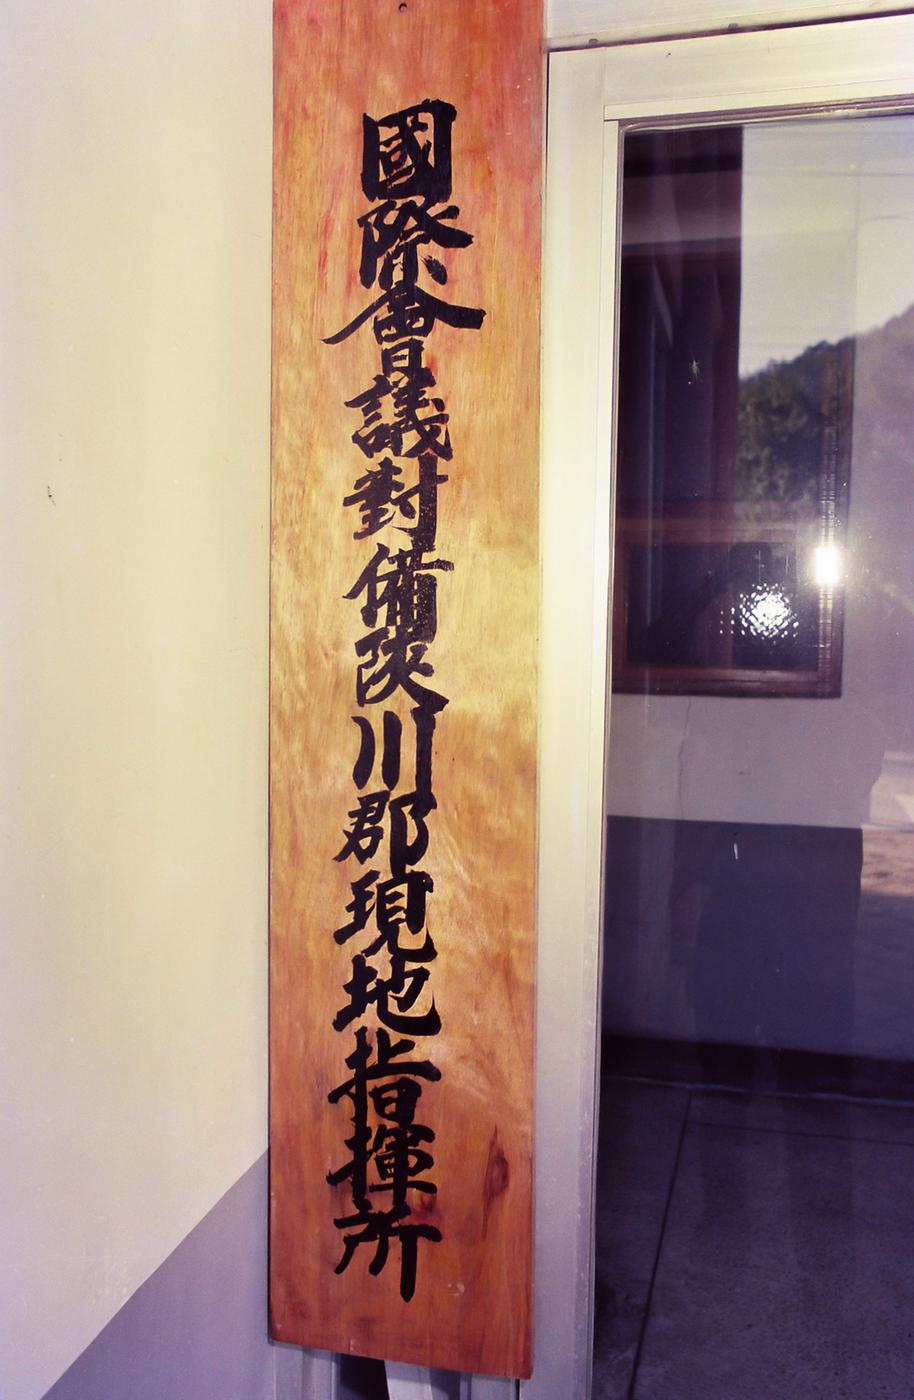 國際會議對備陜川郡現地指揮所